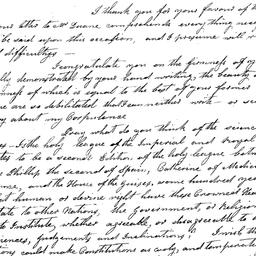 I thank you for your favour of
letter to Mr Duane comprehends everything nece
be said upon this occasion, and I presume will
difficulties —
I congratulate you on the firmness of
demonstrated by your hand writing, the beauty
of which is equal to the best of your former
are so debilitated that I can neither write — or
my Correspondence
Pray what do you think of the scien
Is the holy league of the Imperial and Royal
to be a second Edition of the holy league bet
Philip the second of Spain, Catherine of
and the House of the Guises, some hundred
human or divine right have these Crowned Hea
to other Nations, the Government, or Religion
to Institute, whether agreeable, or disagreeable to
Judgements and Inclinations. I wish th
could make Constitutions as wisely, and temperate